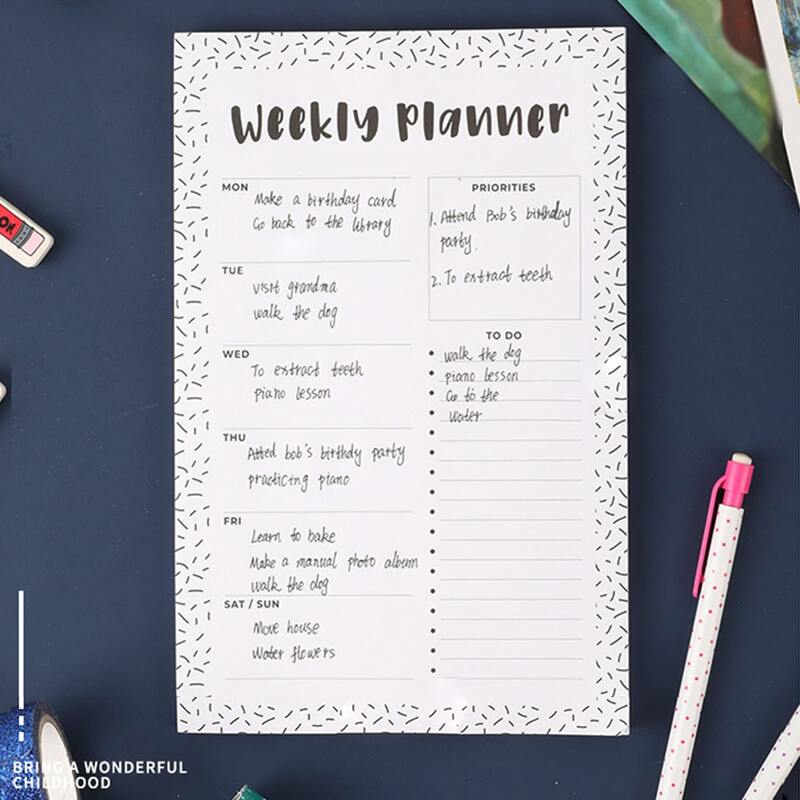 Weekly Planner
MON
Make a birthday card
Go back to the library
TUE
visit grandma
walk the dog
WED
To extract teeth
piano lesson
THU
Atted bob's birthdy party
practicing piano
FRI
Learn to bake
Make a manual photo album
walk the dog
SAT / SUN
Move house
Water flowers
PRIORITIES
1. Attend Bob's birthday
party.
2. To extract teeth
TO DO
walk the dog
piano lesson
Go to the
Water
BRING A WONDERFUL
CHILDHOOD